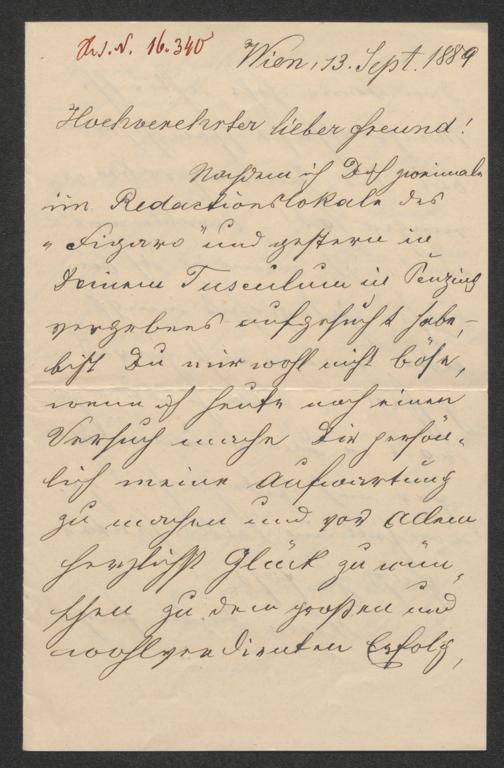 Hs. N. 16.340
Wien, 13. Sept. 1889
Hochverehrter lieber Freund!
Nachdem ich Dich zweimale
im Redactionslokale des
„Figaro" und gestern in
Deinem Tusculum in Penzing
vergebens aufgesucht habe,
bist Du mir wohl nicht böse,
wenn ich heute noch einen
Versuch mache Dir persön-
lich meine Aufwartung
zu machen und vor Allem
herzlichst Glück zu wün-
schen zu dem großen und
wohlverdienten Erfolg,